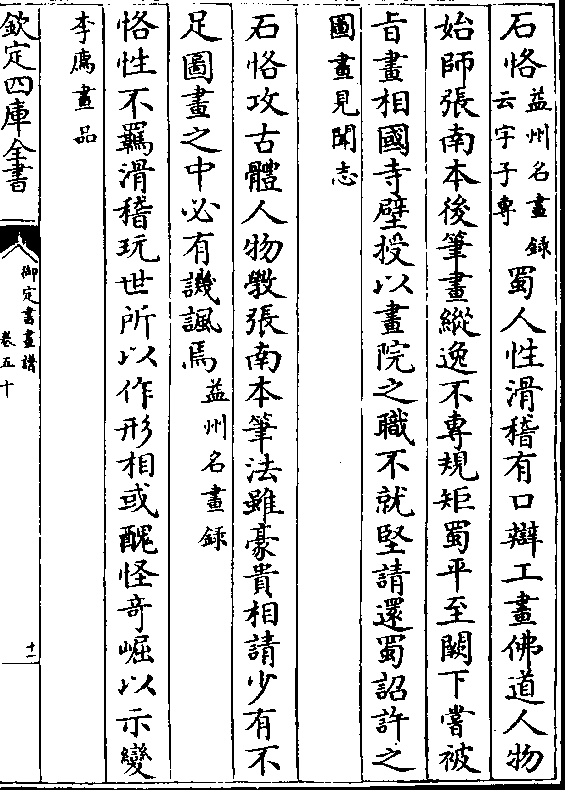 石恪益州名畫錄云字子專蜀人性滑稽有口辯工畫佛道人物
始師張南本後筆畫縱逸不專規矩蜀平至闕下嘗被
旨畫相國寺壁授以畫院之職不就堅請還蜀詔許之
圖畫見聞志
石恪攻古體人物斆張南本筆法雖豪貴相請少有不
足圖畫之中必有譏諷焉益州名畫錄
恪性不羈滑稽玩世所以作形相或醜怪奇崛以示變
李廌畫品
欽定四庫全書
御定書畫譜
卷五十
十一